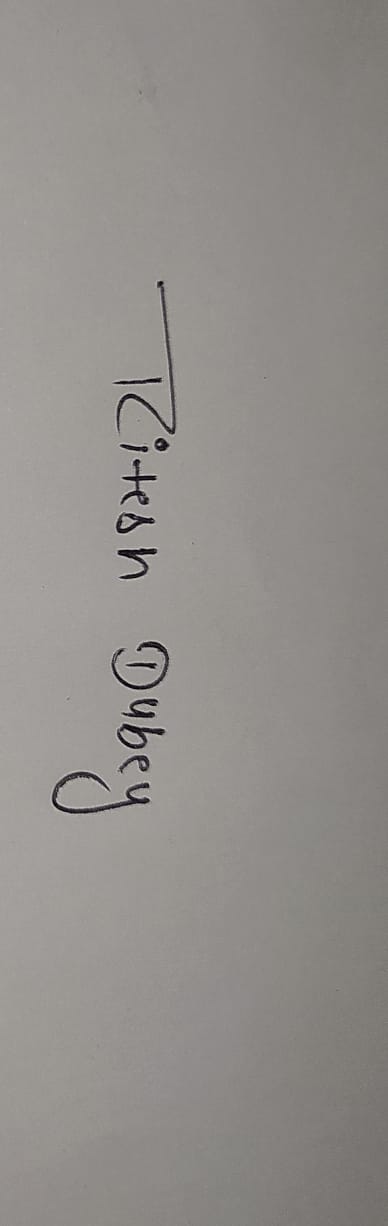 Ritesh Dubey